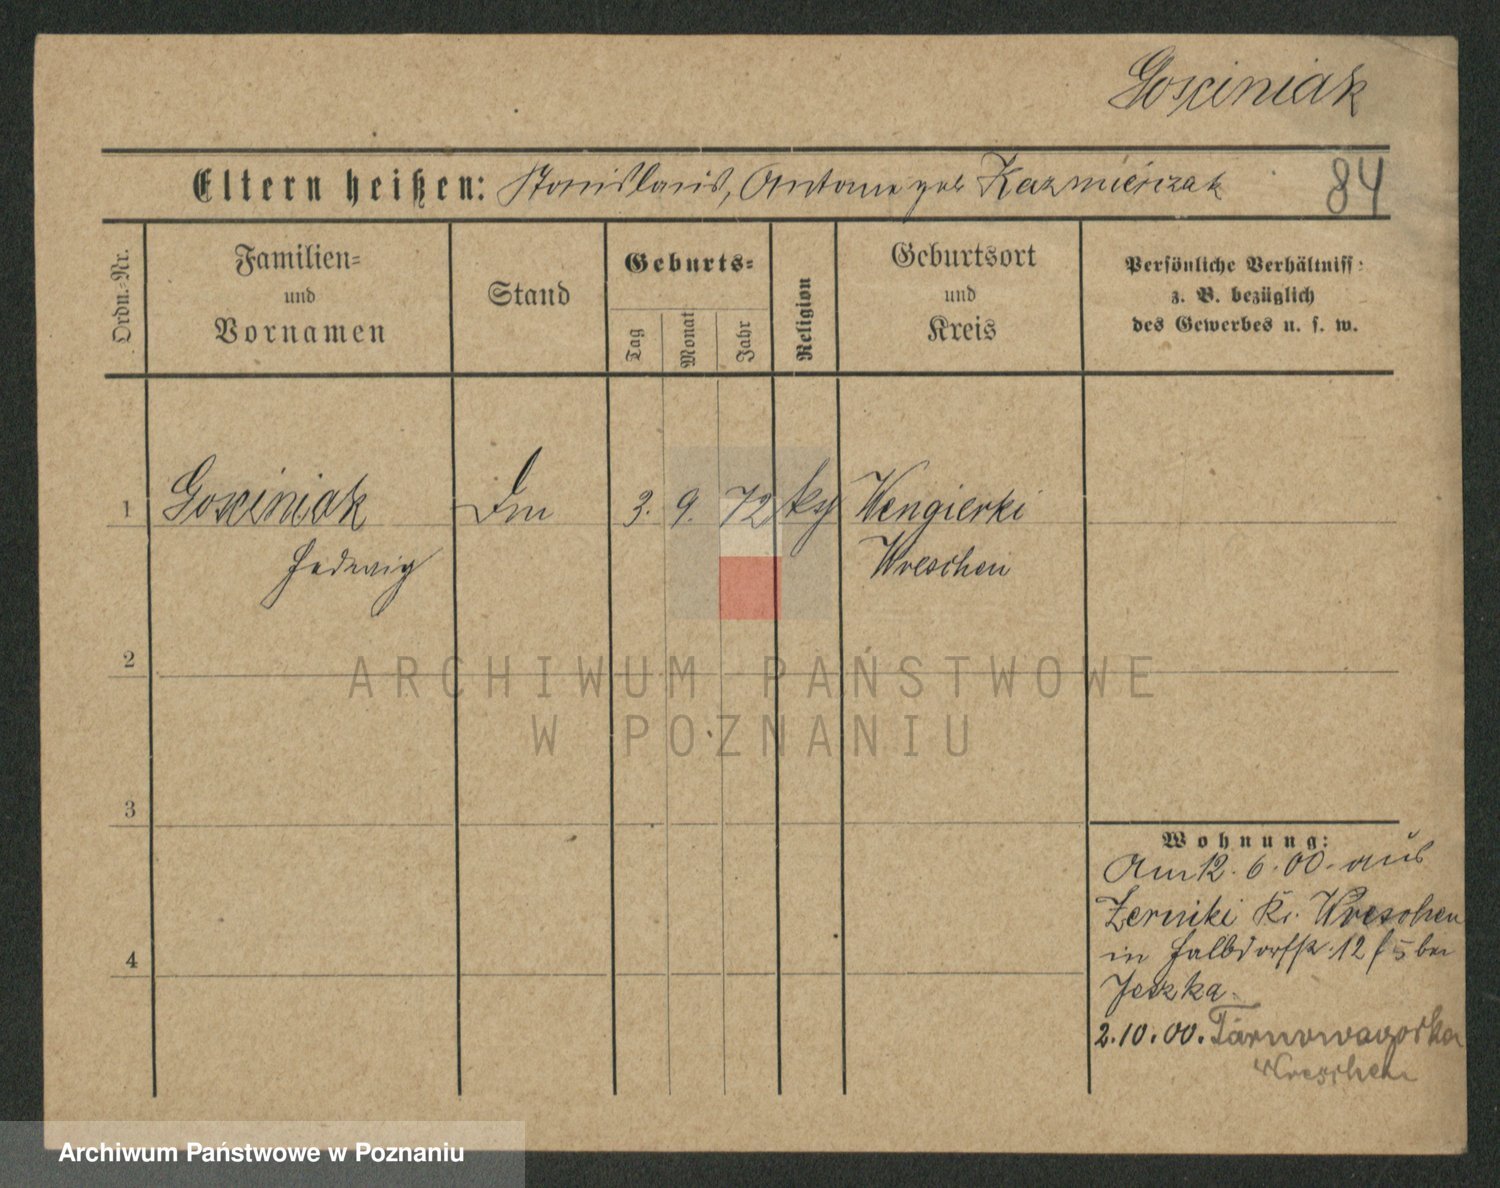 Gosciniak
Eltern heißen: Stanislaus, Antonie geb Kazmierczak
84
Ordn.-Nr.
Familien-
und
Vornamen
Stand
Geburts-
Tag
Monat
Jahr
Religion
Geburtsort
und
Kreis
Persönliche Verhältniss
z. B. bezüglich
des Gewerbes u. s. w.
1 Gosciniak 3. 9. 72 Wengierki
Hedwig Wreschen
2
ARCHIWUM PAŃSTWOWE
W POZNANIU
3
Wohnung:
Am 12. 6. 00. aus
Zerniki Kr. Wreschen
in Halbdorfstr. 12 bei
Jeszka.
4
2. 10. 00. Tarnowagorka
Wreschen
Archiwum Państwowe w Poznaniu